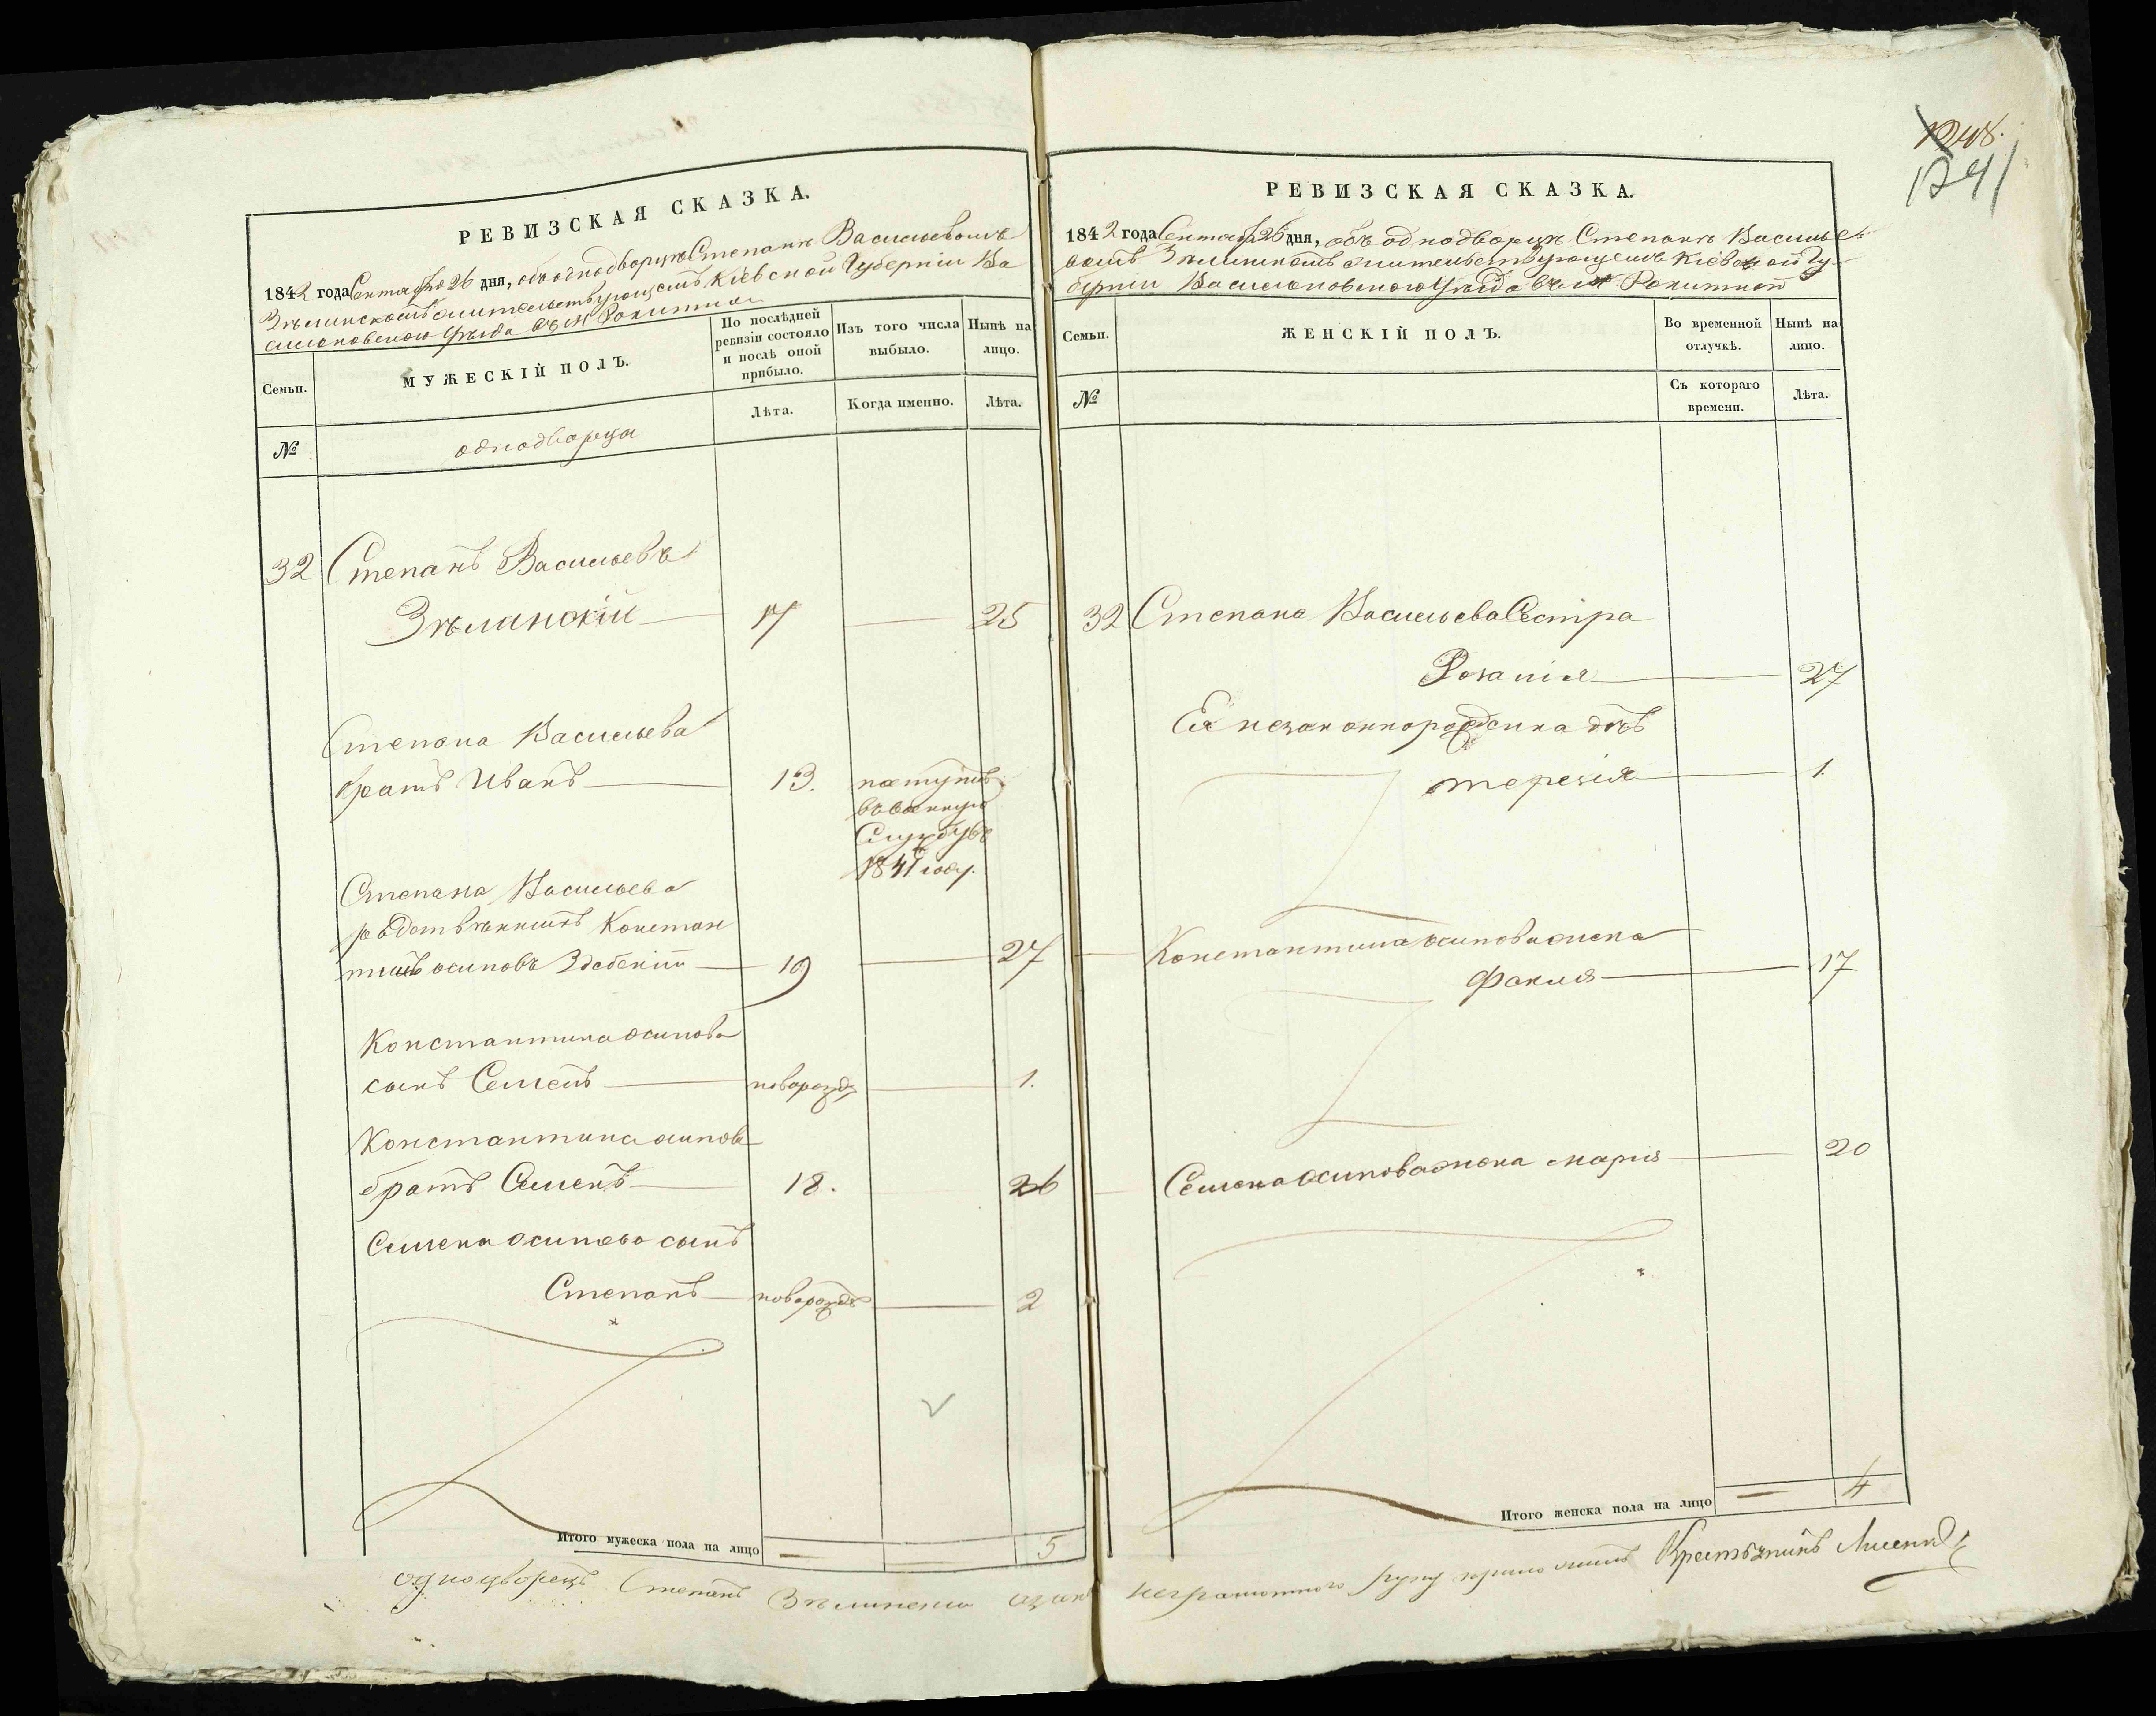 1248.
1241
РЕВИЗСКАЯ СКАЗКА.
1842 года Сентября 26 дня, объ однодворцѣ Степанѣ Васильевомъ
Зѣлинскомъ жительствующемъ Кіевской Губерніи Ва
сильковского Уѣзда въ м Рокитной
Семьи.
МУЖЕСКІЙ ПОЛЪ.
По послѣдней ревизіи состояло и послѣ оной прибыло.
Изъ того числа выбыло.
Нынѣ на лицо.
№
однодворцы
Лѣта.
Когда именно.
Лѣта.
32 Степанъ Васильевъ
Зѣлинскій 17 25
Степана Васильева
братъ Иванъ 13. поступ.
въ военную
Службу въ
1841 году.
Степана Васильева
родственникъ Констан
тинъ осиповъ 19 27
Константина осипова
сынъ Семенъноворожд 1.
Константина осипов
братъ Семенъ 18. 26
Семена осипова сынъ
Степанъ новорожд 2
Итого мужеска пола на лицо — — 5
РЕВИЗСКАЯ СКАЗКА.
1842 года Сентяб 26 дня, объ однодворцѣ Степанѣ Василье
вомъ Зѣлинскомъ жительствующемъ Кіевской Гу-
берніи Васильковского Уѣзда въ м Рокитной
Семьи.
ЖЕНСКІЙ ПОЛЪ.
Во временной отлучкѣ.
Нынѣ на лицо.
№
Съ котораго времени.
Лѣта.
32 Степана Васильева Сестра
Розалія 27
Ея незаконнорожденна дочь
терезія 1.
Константина осипова жена
Фекля 17
Семена Осипова жена марія 20
Итого женска пола на лицо — 4
однодворецъ Степанъ Зѣлинскій неграмотного руку приложилъ Крестьянинъ